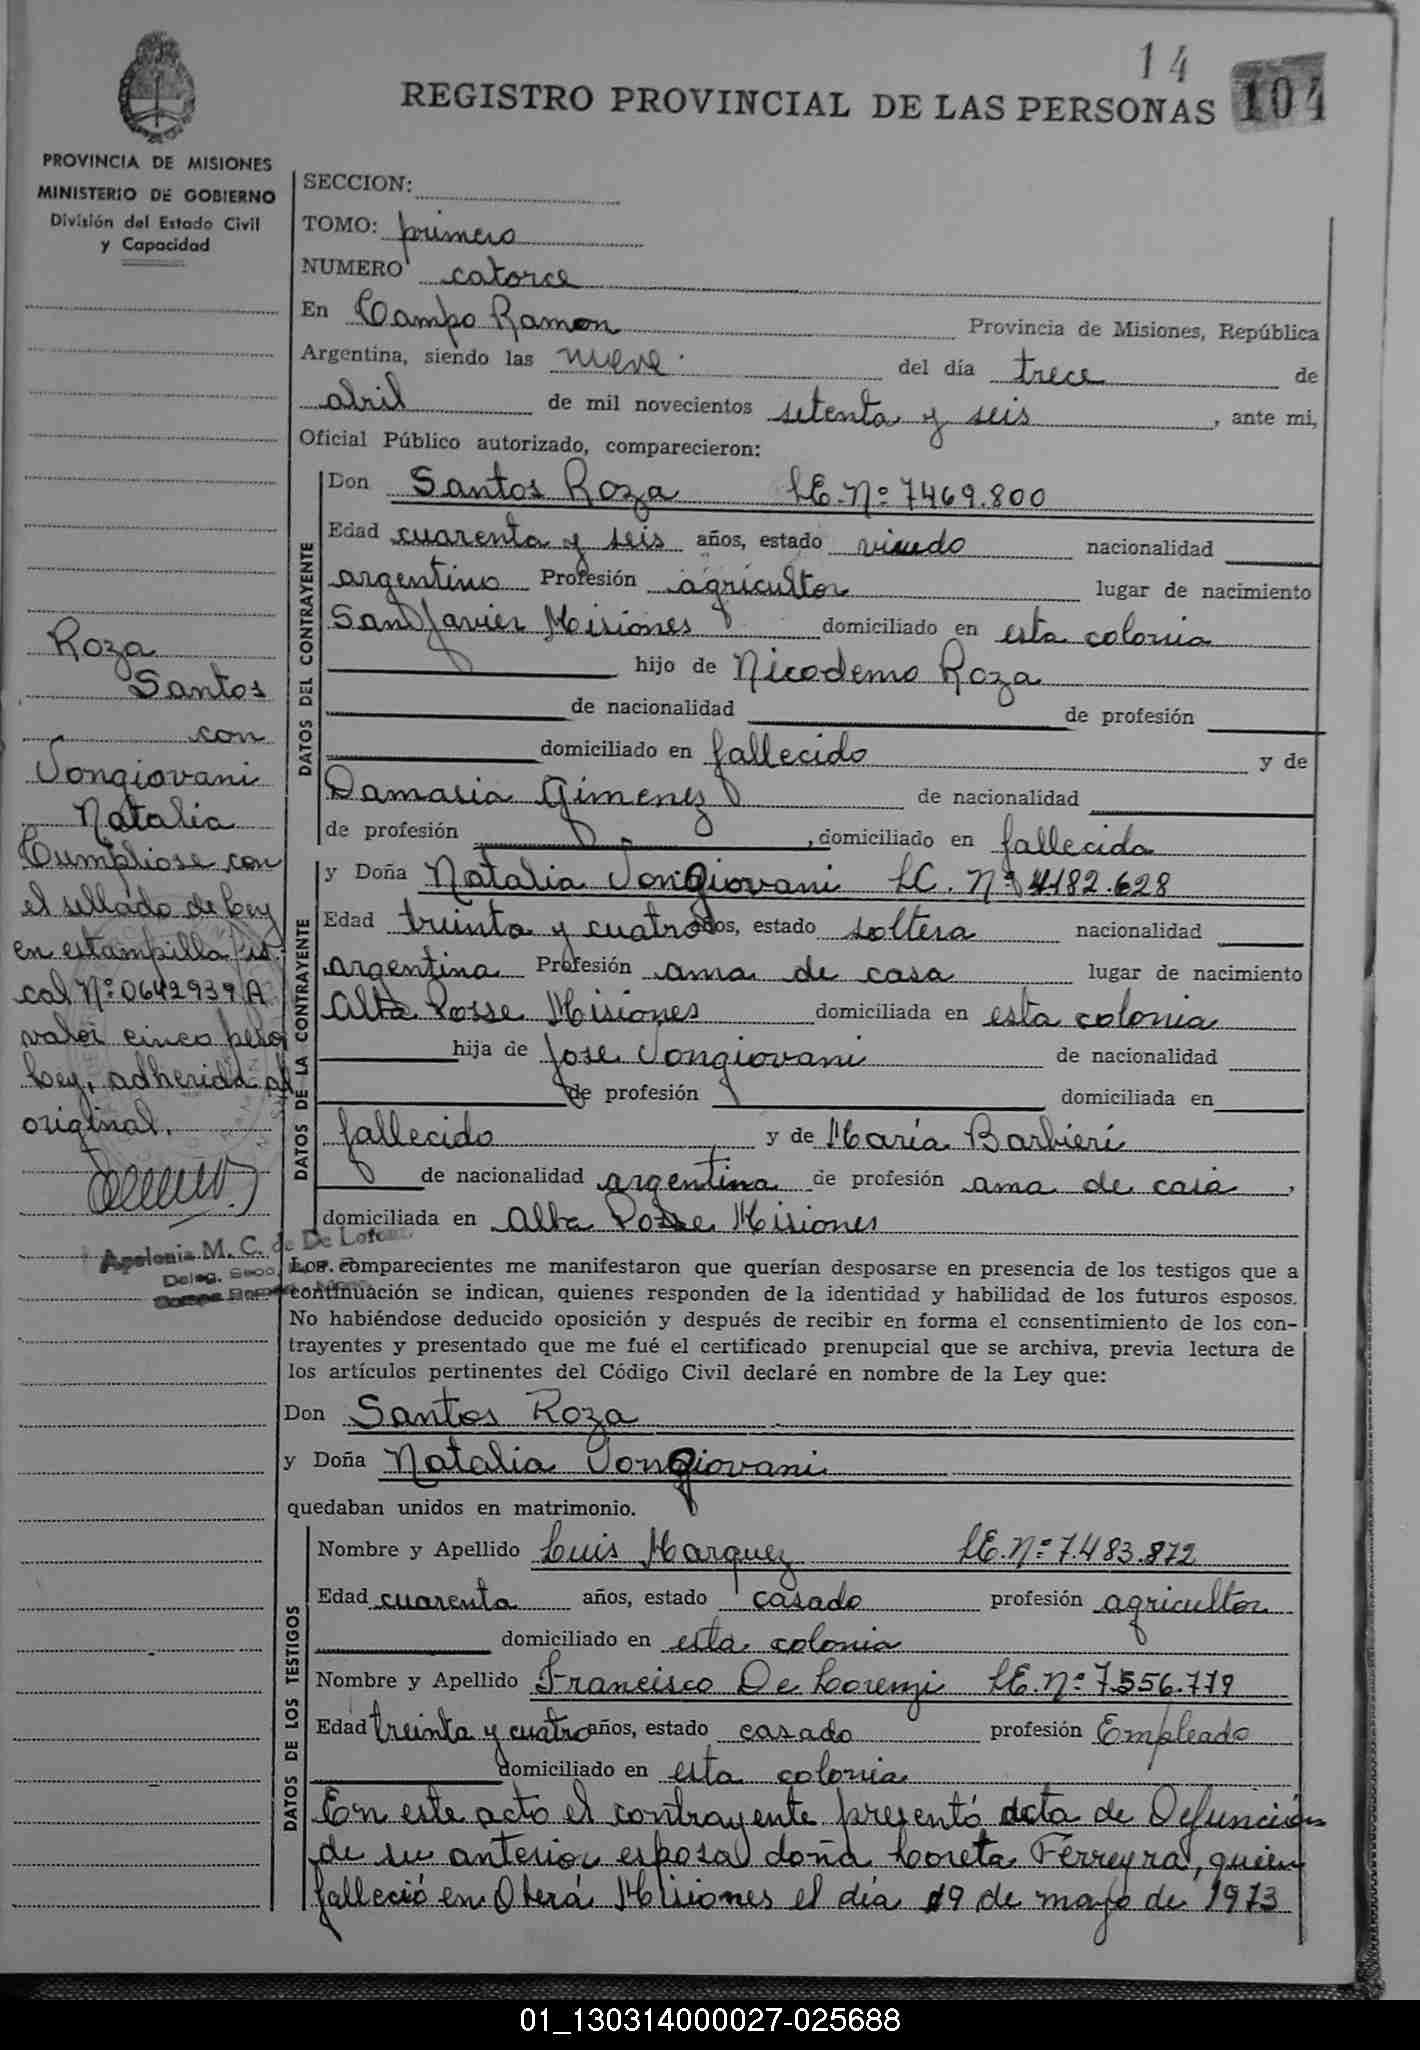 14
REGISTRO PROVINCIAL DE LAS PERSONAS 104
PROVINCIA DE MISIONES
MINISTERIO DE GOBIERNO
División del Estado Civil
y Capacidad
SECCION:
TOMO: primero
NUMERO catorce
En Campo Ramon Provincia de Misiones, República
Argentina, siendo las nueve del día trece de
abril de mil novecientos setenta y seis, ante mi,
Oficial Público autorizado, comparecieron:
DATOS DEL CONTRAYENTE
Don Santos Roza LE. Nº 7469.800
Edad cuarenta y seis años, estado viudo nacionalidad
argentino Profesión agricultor lugar de nacimiento
San Javier Misiones domiciliado en esta colonia
hijo de Nicodemo Roza
de nacionalidad de profesión
domiciliado en fallecido y de
Damasia Gimenez de nacionalidad
de profesión , domiciliado en fallecida
DATOS DE LA CONTRAYENTE
y Doña Natalia Jongiovani LC. Nº 4182.628
Edad treinta y cuatro años, estado soltera nacionalidad
argentina Profesión ama de casa lugar de nacimiento
Alba Posse Misiones domiciliada en esta colonia
hija de Jose Jongiovani de nacionalidad
de profesión domiciliada en
fallecido y de María Barbieri
de nacionalidad argentina de profesión ama de casa,
domiciliada en Alba Posse Misiones
Roza
Santos
con
Jongiovani
Natalia
Cumpliose con
el sellado de ley
en estampilla fis
cal Nº 0642939 A
valor cinco pesos
ley, adherida al
original.
Apolonia M. C. de De Lof
Deleg. Secc.
Campo Ramon
Los comparecientes me manifestaron que querían desposarse en presencia de los testigos que a
continuación se indican, quienes responden de la identidad y habilidad de los futuros esposos.
No habiéndose deducido oposición y después de recibir en forma el consentimiento de los con-
trayentes y presentado que me fué el certificado prenupcial que se archiva, previa lectura de
los artículos pertinentes del Código Civil declaré en nombre de la Ley que:
Don Santos Roza
y Doña Natalia Jongiovani
quedaban unidos en matrimonio.
DATOS DE LOS TESTIGOS
Nombre y Apellido Luis Marquez LE. Nº 7.483.872
Edad cuarenta años, estado casado profesión agricultor
domiciliado en esta colonia
Nombre y Apellido Francisco De Lorenzi LE. Nº 7.556.779
Edad treinta y cuatro años, estado casado profesión Empleado
domiciliado en esta colonia
En este acto el contrayente presentó acta de Defunción
de su anterior esposa doña Loreta Ferreyra, quien
falleció en Oberá Misiones el día 19 de mayo de 1973
01_130314000027-025688